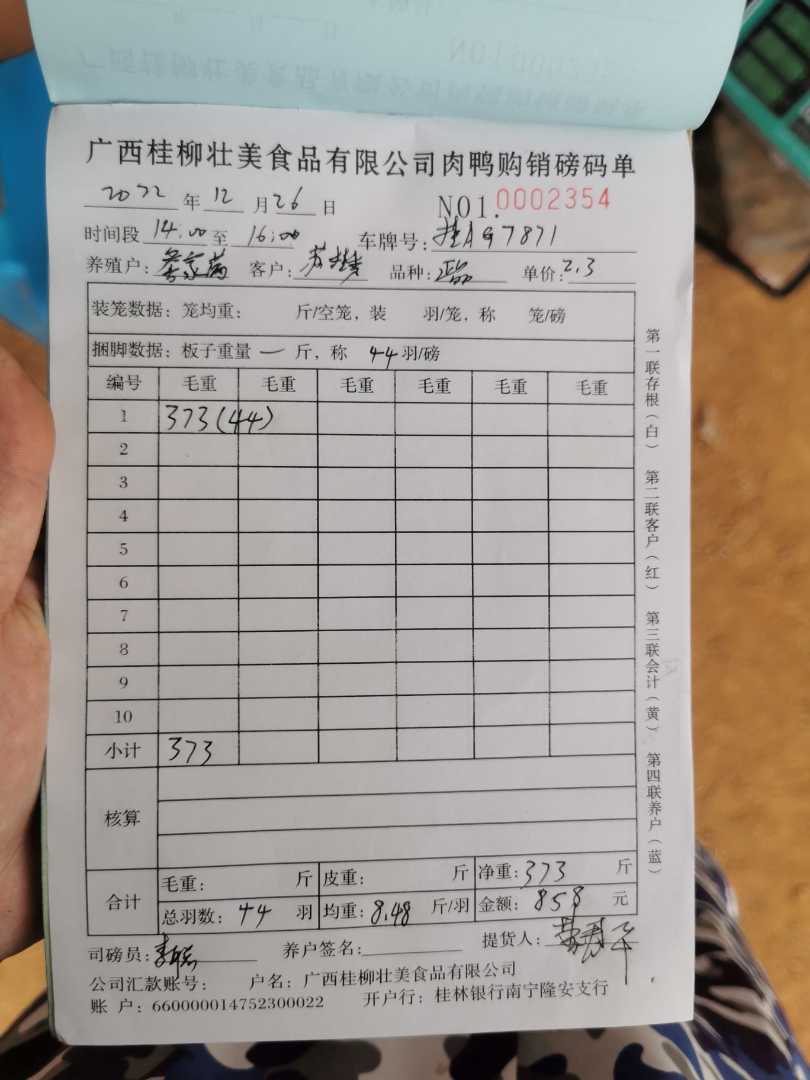 广西桂柳壮美食品有限公司肉鸭购销磅码单
2022 年 12 月 26 日 NO1. 0002354
时间段 14:00 至 16:00 车牌号: 桂A G7871
养殖户: 客户: 品种: 正品 单价: 2.3
装笼数据: 笼均重: 斤/空笼, 装 羽/笼, 称 笼/磅
捆脚数据: 板子重量 一 斤, 称 44 羽/磅
编号 毛重 毛重 毛重 毛重 毛重 毛重
1 373(44)
2
3
4
5
6
7
8
9
10
小计 373
核算
合计 毛重: 斤 皮重: 斤 净重: 373 斤
总羽数: 44 羽 均重: 8.48 斤/羽 金额: 858 元
司磅员: 养户签名: 提货人:
公司汇款账号: 户名: 广西桂柳壮美食品有限公司
账 户: 660000014752300022 开户行: 桂林银行南宁隆安支行
第一联存根(白) 第二联客户(红) 第三联会计(黄) 第四联养户(蓝)